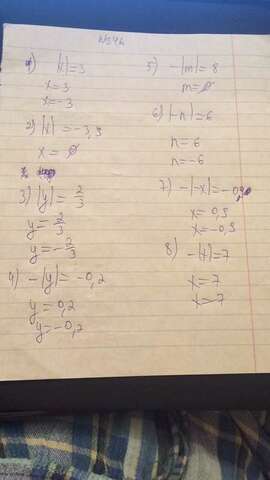 1) |x|=3
x=3
x=-3
2) |x|=-3,9
x=∅
3) |y|=2/3
y=2/3
y=-2/3
4) -|y|=-0,2
y=0,2
y=-0,2
5) -|m|=8
m=∅
6) |-n|=6
n=6
n=-6
7) -|-x|=-0,9
x=0,9
x=-0,9
8) -|x|=7
x=7
x-7